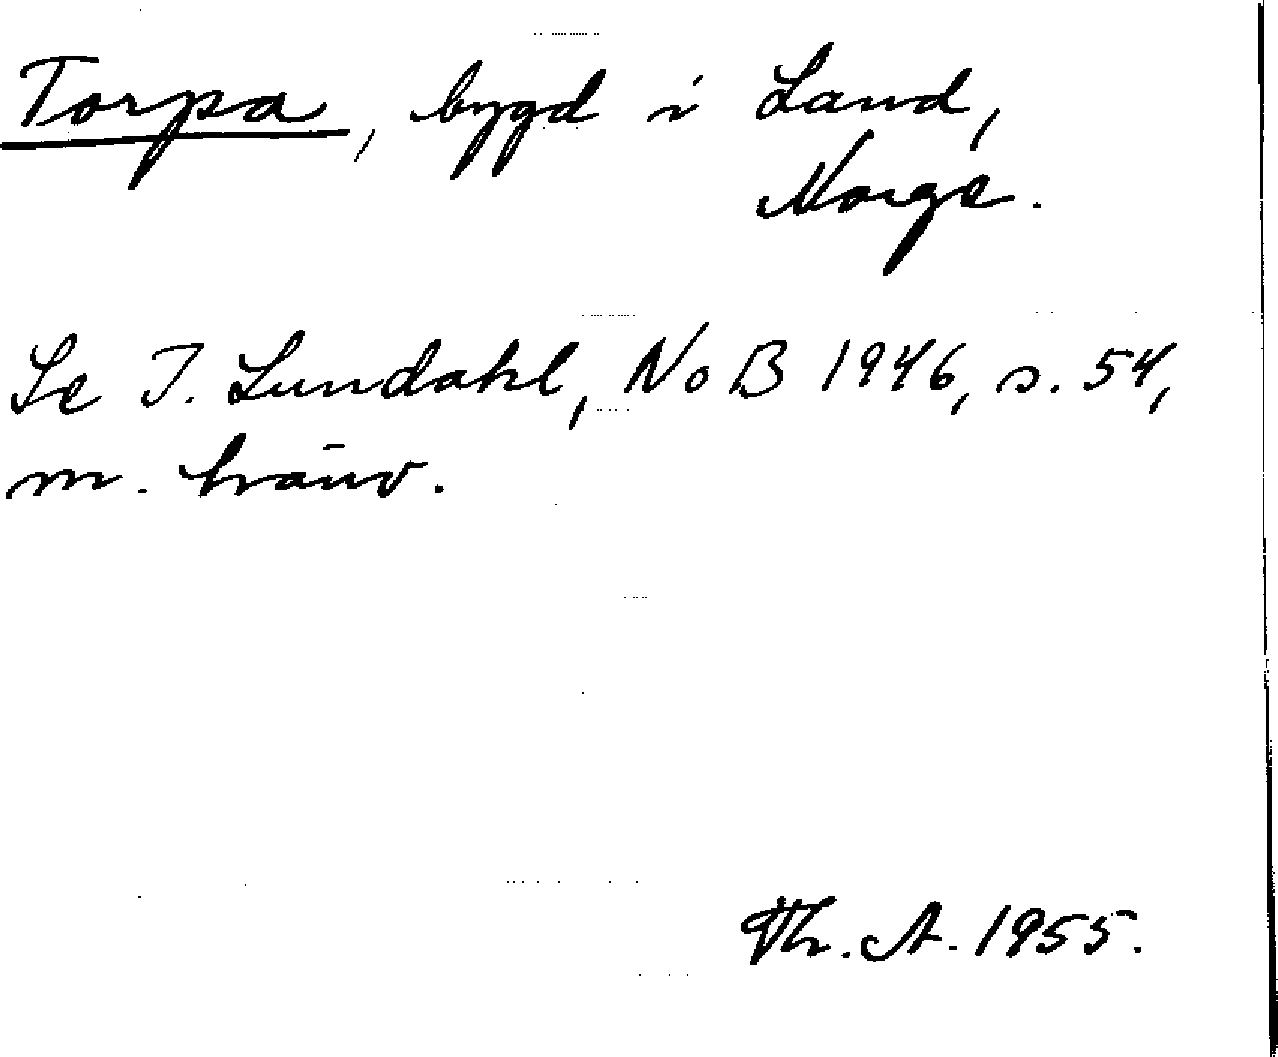 Torpa, bygd i Land,
Norge.
Se I. Lundahl, NoB 1946, s. 54,
m. hänv.
Th. A. 1955.